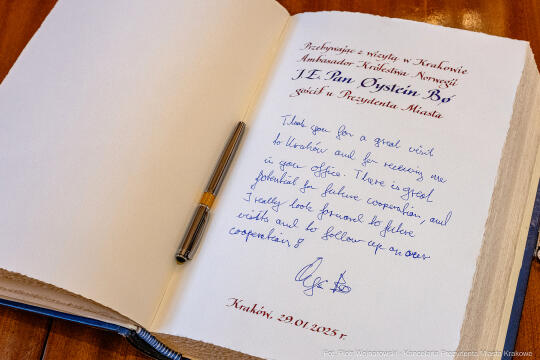 Przebywając z wizytą w Krakowie
Ambasador Królestwa Norwegii
J.E. Pan Øystein Bø
gościł u Prezydenta Miasta
Thank you for a great visit
to Kraków and for receiving me
in your office. There is great
potential for future cooperation, and
I really look forward to future
visits and to follow up on our
cooperation!
Kraków, 29.01.2025 r.
Fot. Piotr Wojnarowski - Kancelaria Prezydenta Miasta Krakowa